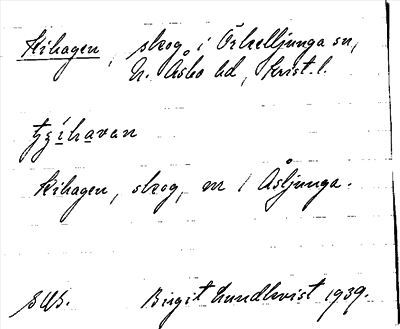 Kihagen, skog i Örkelljunga sn,
N. Åsbo hd, Krist. l.
Kihagen, skog, m / Åsljunga.
SWS.
Birgit Lundkvist 1939.